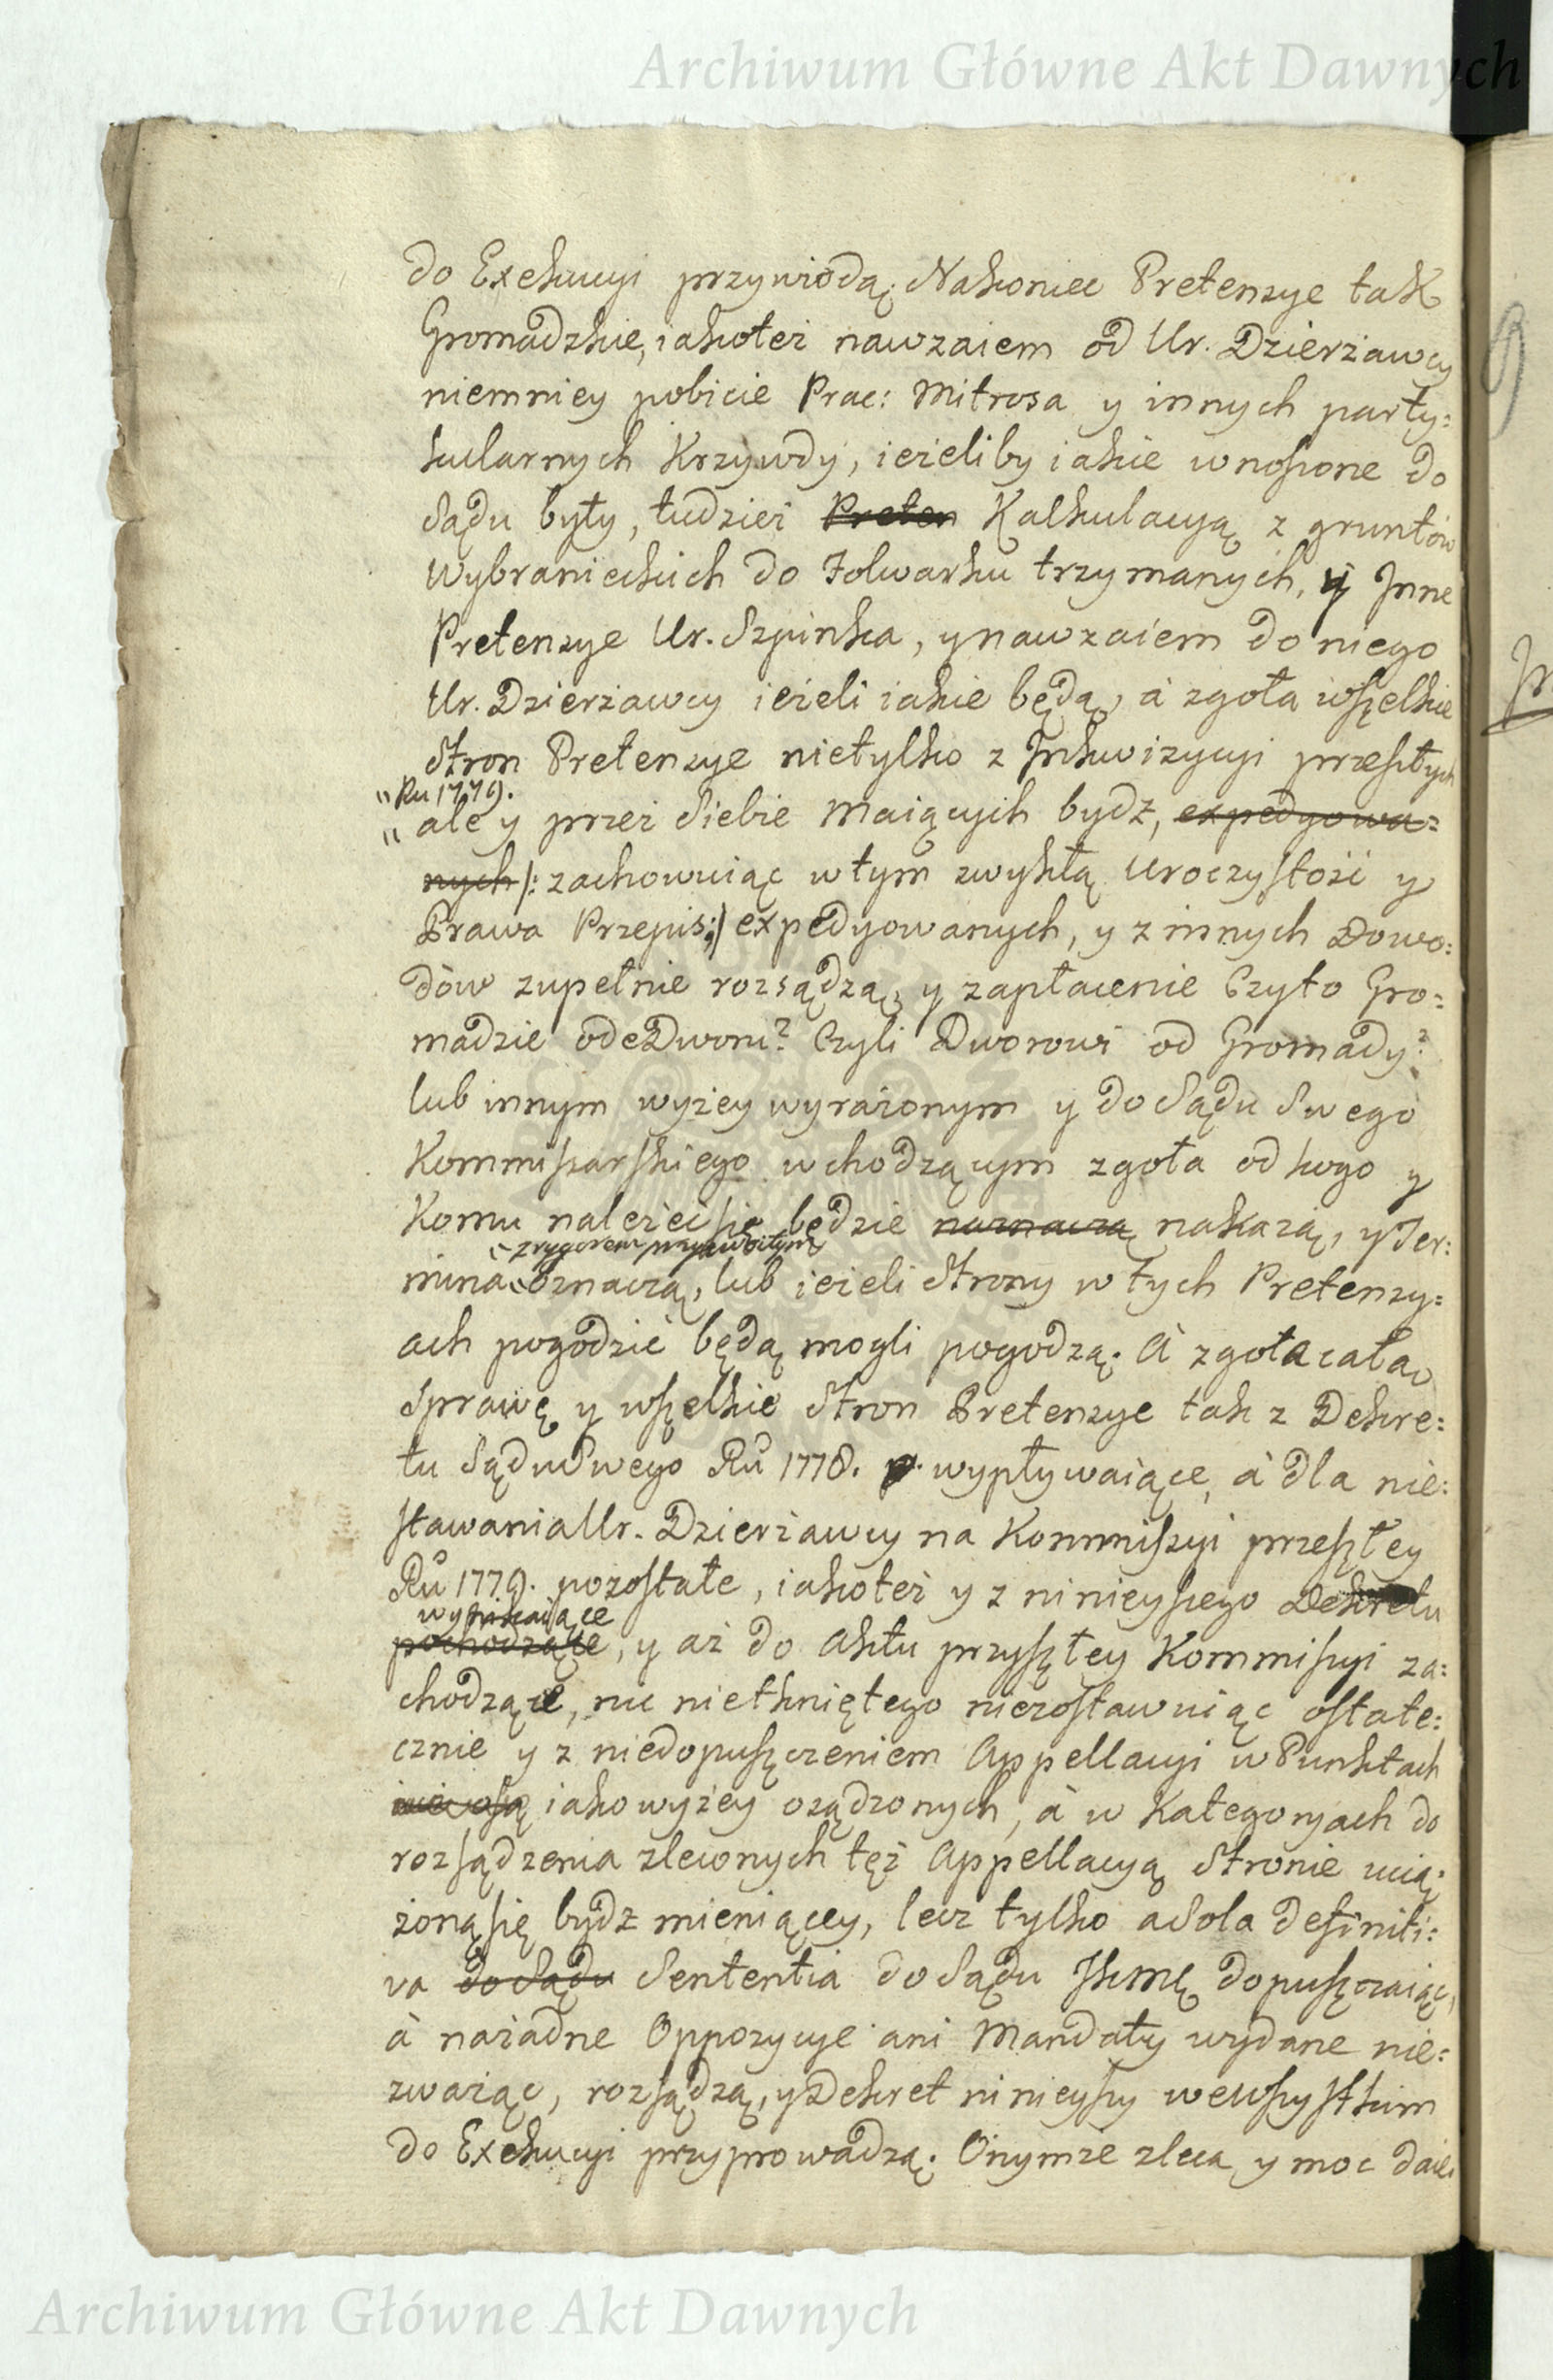 Archiwum Główne Akt Dawnych
do Exekucyi przywiodą. Nakoniec Pretensye tak
Gromadzkie, iakoteż nawzaiem od Ur. Dzierżawcy
niemniey pobicie Prac: Mitrosa y innych party=
kularnych Krzywdy, ieżeliby iakie wnosione do
Sądu były, tudzież Preten Kalkulacyą z gruntów
Wybranieckich do Folwarku trzymanych, y Inne
Pretensye Ur. Szpinka, y nawzaiem do niego
Ur. Dzierżawcy ieżeli iakie będą, à zgoła wszelkie
Stron Pretensye nietylko z Inkwizycyi przeszłych
"Ru 1779.
" ale y przez Siebie maiących bydz, expedyowa=
nych /: zachowuiąc w tym zwykłą Uroczystość y
Prawa Przepis:/ expedyowanych, y z innych Dowo=
dów zupełnie rozsądzą, y zapłacenie Czyto Gro=
madzie ode Dworu? Czyli Dworowi od Gromady?
lub innym wyżey wyrażonym y do Sądu Swego
Kommissarskiego wchodzącym zgoła od kogo y
Komu należeć się będzie naznaczą nakażą, y Ter=
z rygorem przyzwoitym
mina oznaczą, lub ieżeli Strony w tych Pretensy=
ach pogodzić będą mogli pogodzą. A zgoła całą
Sprawę y wszelkie Stron Pretensye tak z Dekre=
tu Sądu Swego Ru 1778. wypływaiące, à dla nie=
stawania Ur. Dzierżawcy na Kommissyi przeszłey
Ru 1779. pozostałe, iakoteż y z ninieyszego Dekretu
wynikaiące
pochodzące, y aż do Aktu przyszłey Kommissyi za=
chodzące, nic nietkniętego niezostawuiąc ostate=
cznie y z niedopuszczeniem Appellacyi w Punktach
iako wyżey osądzonych, à w Kategoryach do
rozsądzenia zleconych też Appellacyą Stronie ucią=
żoną się bydz mieniącey, lecz tylko a Sola Definiti=
va do Sądu Sententia do Sądu JKMę dopuszczaiąc,
à nażadne Oppozycye ani Mandaty wydane nie=
zważaiąc, rozsądzą, y Dekret ninieyszy we wszystkim
do Exekucyi przyprowadzą. Onymże zleca y moc daie
Archiwum Główne Akt Dawnych